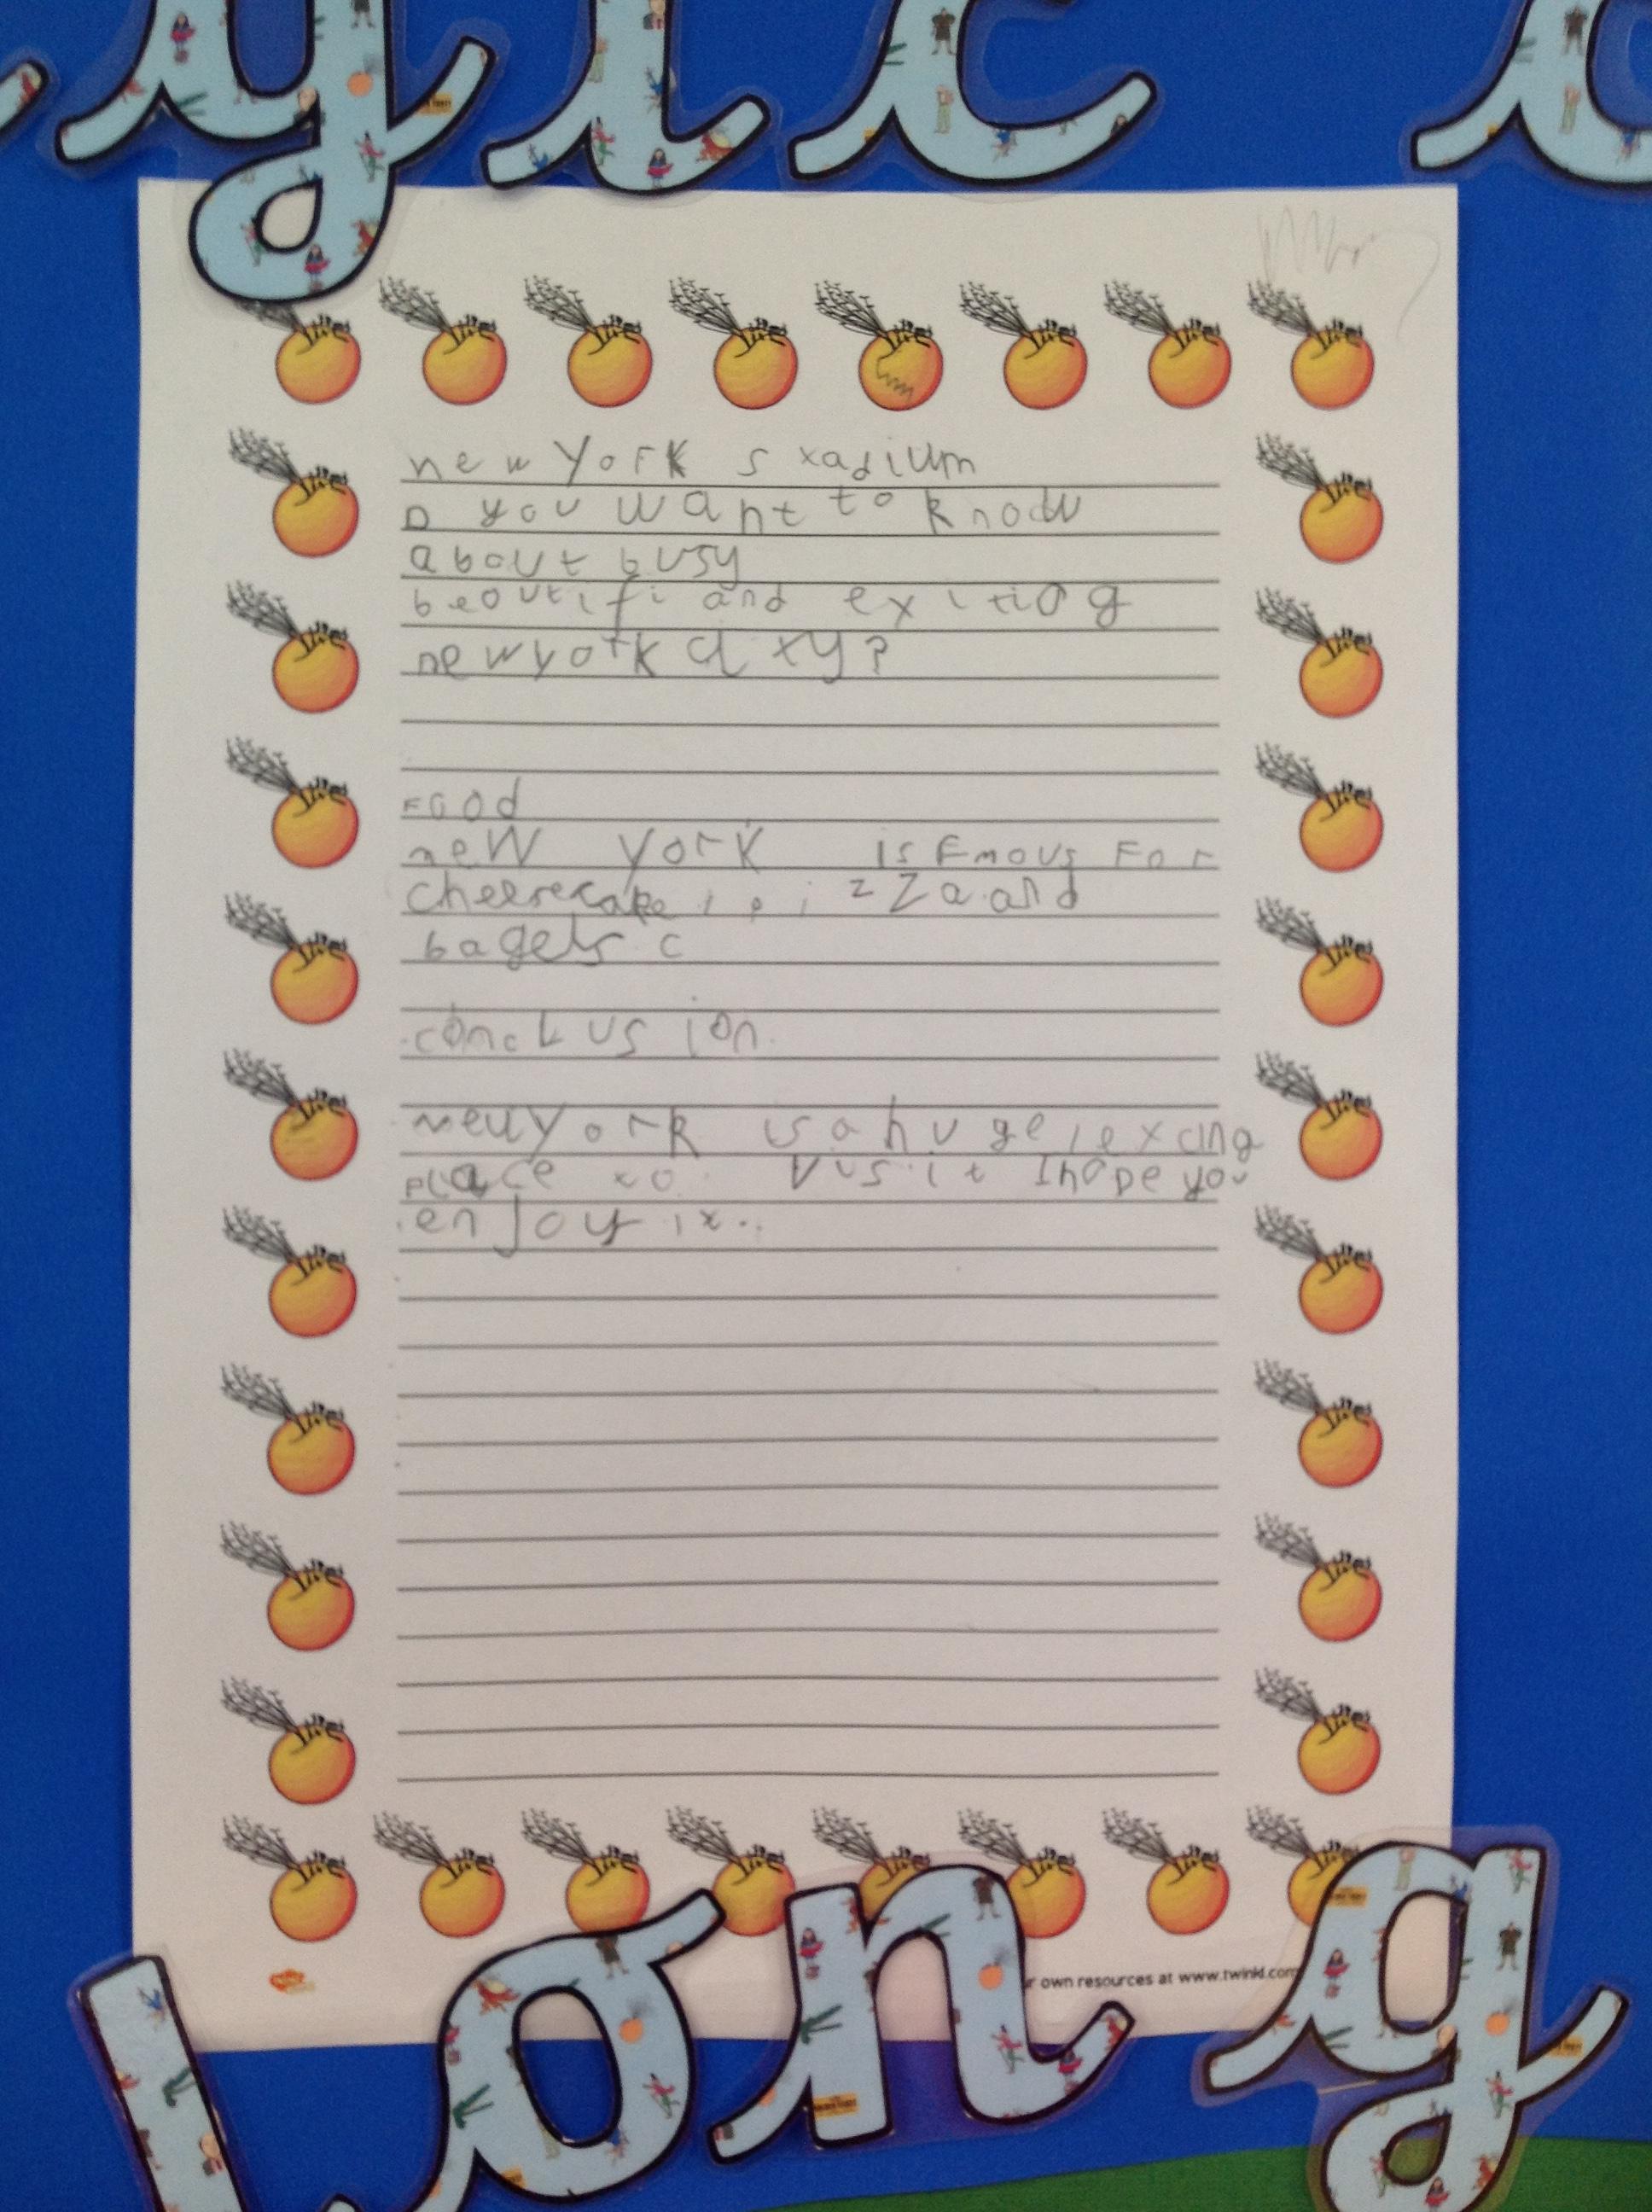 gic
new york sxadium
D you want to know
about busy
beoutifi and exiting
newyork cixy?
Food
new york is Fmous For
cheesecake , p i zza and
bagels c
conclusion.
newyork is a huge , excing
place xo vusit I hope you
enjoy ix..
r own resources at www.twinkl.com
long